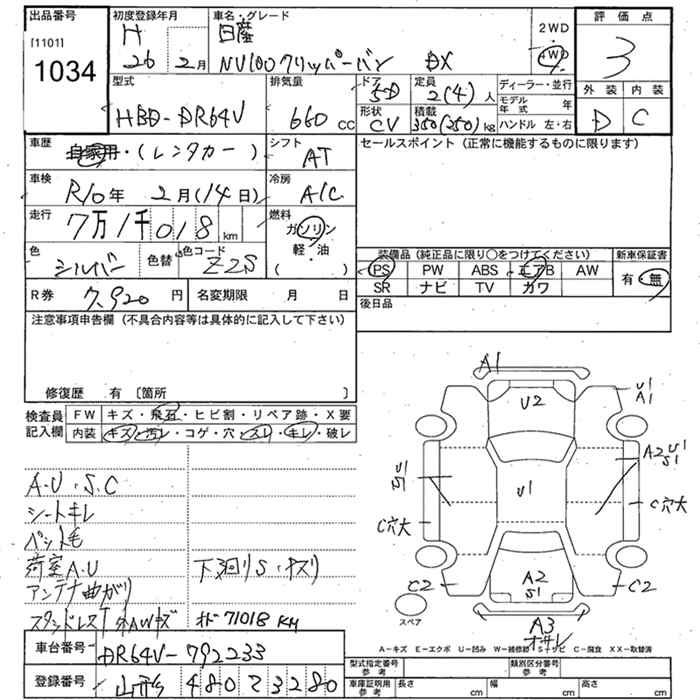 出品番号 初度登録年月 車名・グレード 評価点
[1101] H 日産 2WD
1034 26年 2月 NV100クリッパーバン DX 4WD 3
型式 排気量 ドア 定員 ディーラー・並行 外装 内装
HBD-DR64V 660 cc 5D 2(4)人 モデル年式 年 D C
形状 積載
CV 350(250)kg ハンドル 左・右
車歴 シフト セールスポイント(正常に機能するものに限ります)
自家用・(レンタカー) AT
車検 冷房
R10年 2月(14日) A/C
走行 燃料
7万1千018km ガソリン
軽・油
( )
色 色替 色コード 装備品(純正品に限り○をつけてください) 新車保証書
シルバー Z2S PS PW ABS エアB AW 有・無
SR ナビ TV カワ
R券 7,920円 名変期限 月 日 後日品
注意事項申告欄(不具合内容等は具体的に記入して下さい)
修復歴 有〔箇所 〕
検査員記入欄 FW キズ・飛石・ヒビ割・リペア跡・X要
内装 キズ・汚レ・コゲ・穴・スレ・キレ・破レ
A.U・S.C
シートキレ
ペット毛
荷室A.U 下廻りS・キズリ
アンテナ曲がり
スタッドレスT 71018 KM
A1
U1
A1
U2
A2 U1
S1
U1
S1
U1
C穴大
C穴大
C2
A2
S1
C2
スペア
A3
A−キズ E−エクボ U−凹み W−補修跡 S−サビ C−腐食 XX−取替済
車台番号 DR64V-792233
登録番号 480 2 3280
型式指定番号 参考 類別区分番号 参考
車庫証明用 参考 長さ cm 幅 cm 高さ cm